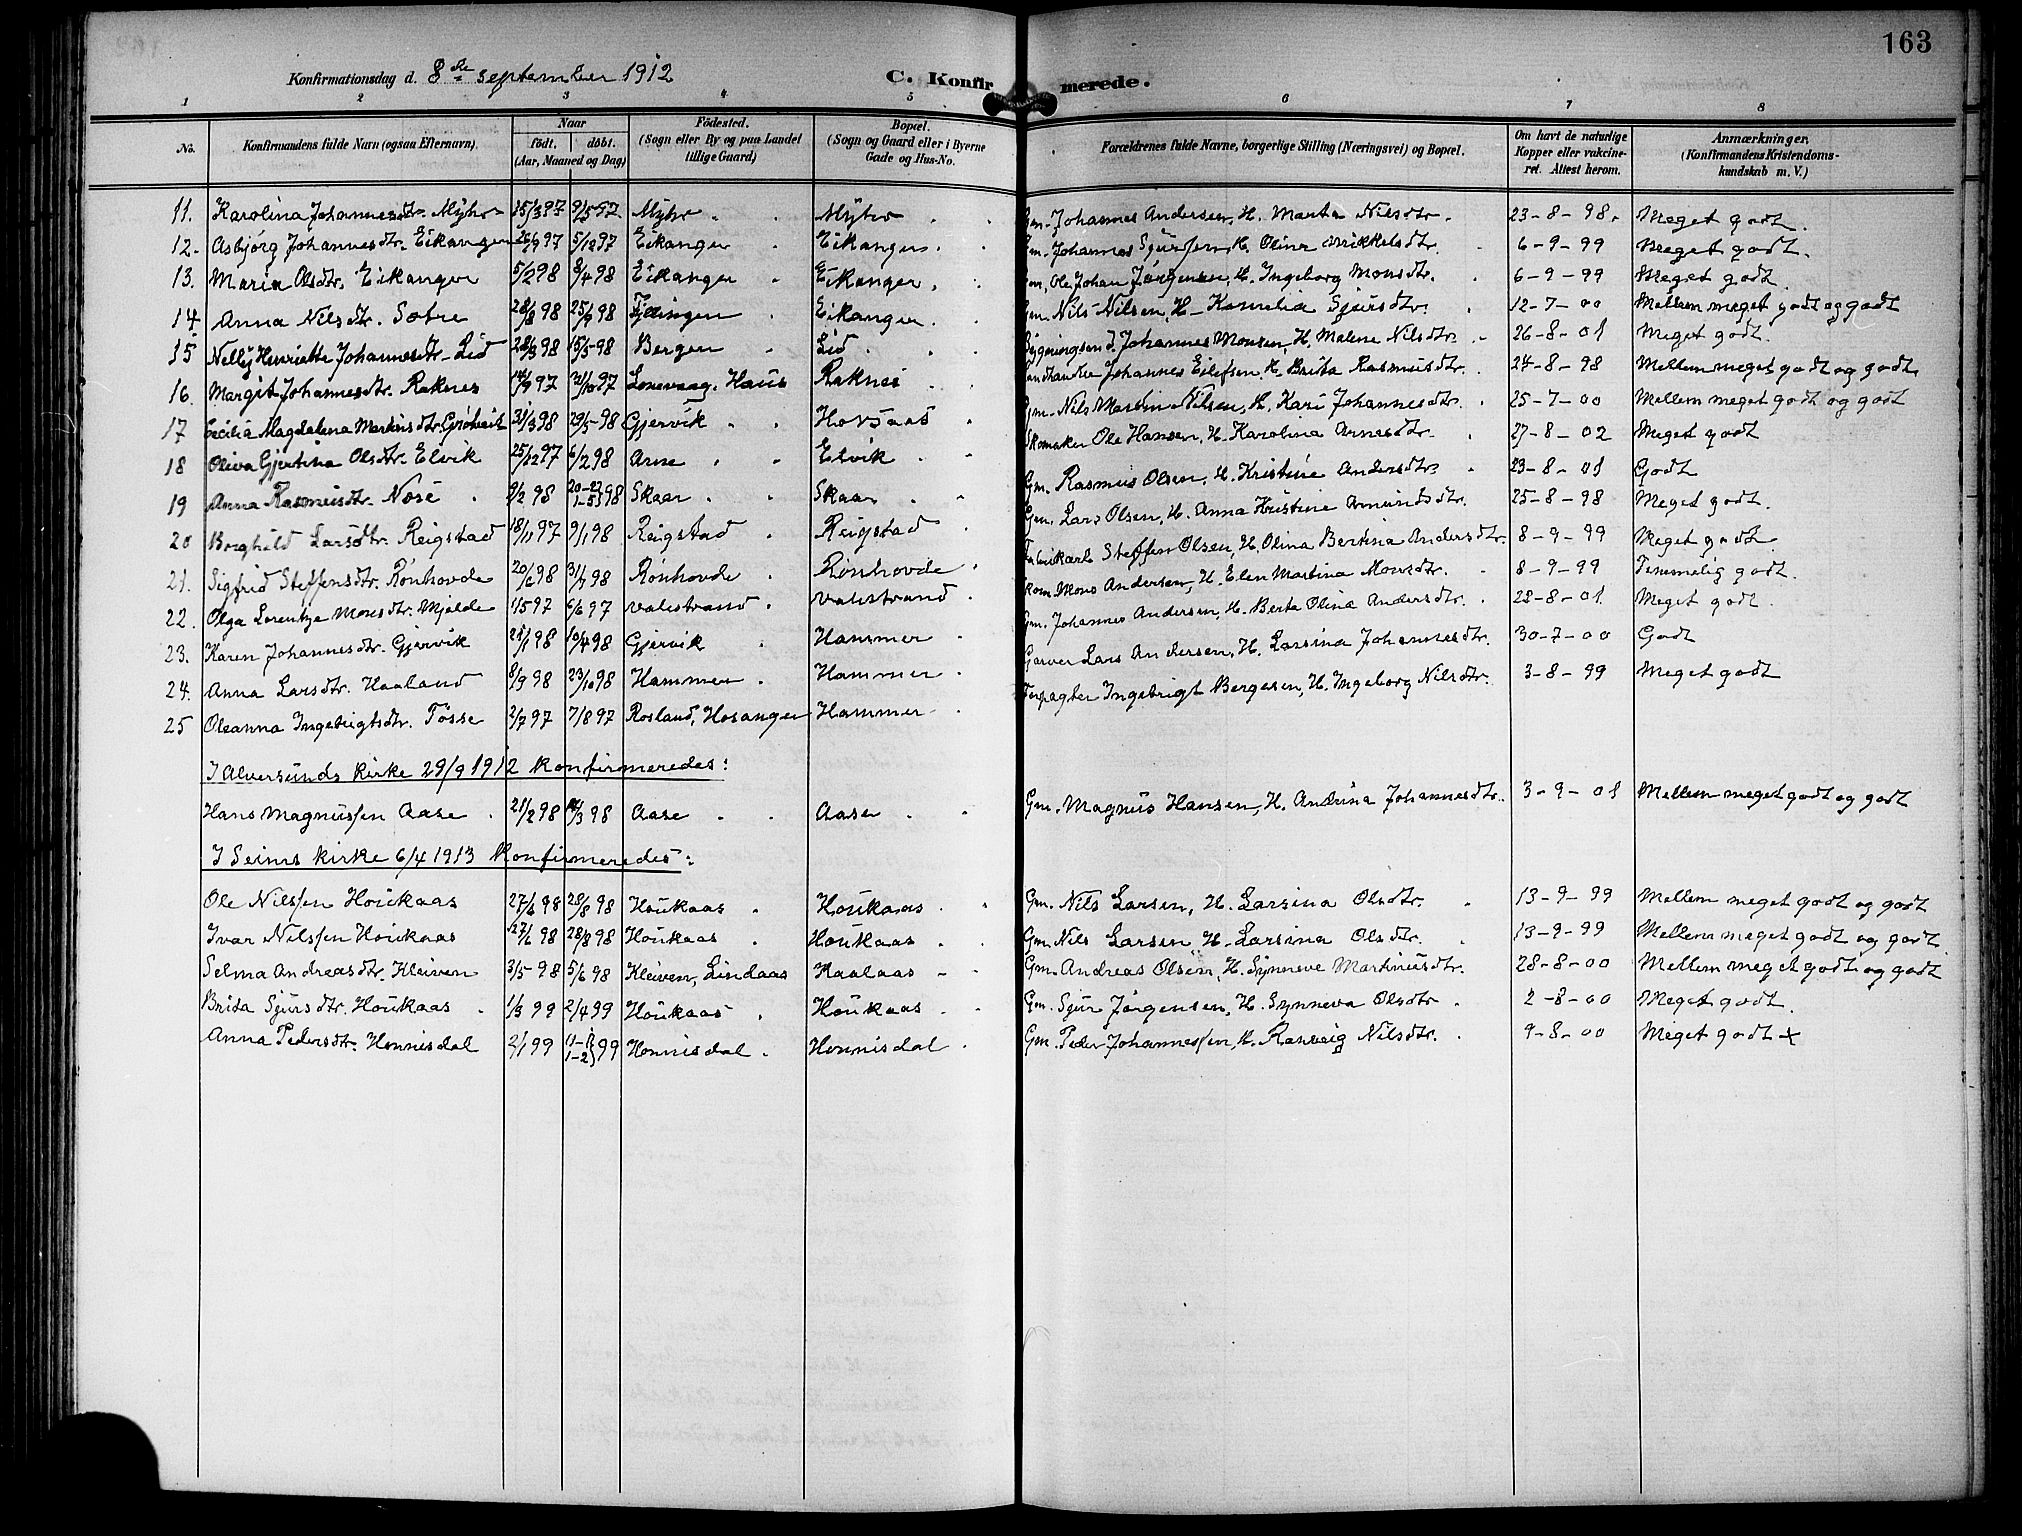 163
Konfirmationsdag d. 8de september 1912 C. Konfirmerede.
1 2 3 4 5 6 7 8
No. Konfirmandens fulde Navn (ogsaa Efternavn). Naar født, døbt. (Aar, Maaned og Dag) Fødested. (Sogn eller By og paa Landet tillige Gaard) Bopæl. (Sogn og Gaard eller i Byerne Gade og Hus-No. Forældrenes fulde Navne, borgerlige Stilling (Næringsvei) og Bopæl. Om havt de naturlige Kopper eller vakcineret. Attest herom. Anmærkninger. (Konfirmandens Kristendomskundskab m. V.)
11. Karolina Johannesdtr. Myhr 25/3 97 9/5 97 Myhr Myhr Gm. Johannes Andersen, H. Marta Nilsdtr. 23-8-98. Meget godt.
12. Asbjörg Johannesdtr. Eikanger 26/9 97 5/12 97 Eikanger Eikanger Gm. Johannes Sjurssen H. Olina Mikkelsdtr. 6-9-99 Meget godt.
13. Maria Olsdtr. Eikanger 5/2 98 8/4 98 Eikanger Eikanger Gm. Ole Johan Jørgensen, H. Ingeborg Monsdtr. 6-9-99 Meget godt.
14 Anna Nilsdtr. Sætre 28/8 98 25/9 98 Eikanger Gm. Nils Nilsen, H. Kornelia Sjursdtr. 12-7-00 Mellem meget godt og godt
15 Nelly Henriette Johannesdtr. Lid 28/3 98 15/5-98 Bergen Lid Johannes Monsen, H. Malene Nilsdtr. 26-8-01 Meget godt.
16. Margit Johannesdtr. Raknes 14/9 97 31/10 97 Lonevaag, Haus Raknes Landhandler Johannes Eilefsen, H. Brita Rasmusdtr. 24-8-98 Mellem meget godt og godt
17 Cecilia Magdalena Martinsdtr. 31/3 98 29/5-98 Gjervik Hovsaas Gm. Nils Martin Nilsen, H. Kari Johannesdtr. 25-7-00 Mellem meget godt og godt
18 Oliva Gjertina Olsdtr. Elvik 25/12 97 6/2 98 Arne Elvik Skomaker Ole Hansen, H. Karolina Arnesdtr. 27-8-02 Meget godt
19 Anna Rasmusdtr. Nese 9/2 98 98 Skaar Skaar Gm. Rasmus Olsen, H. Kristine Andersdtr. 23-8-01 Godt
20 Borghild Larsdtr. Reigstad 18/11 97 9/1 98 Reigstad Reigstad Gm. Lars Olsen, H. Anna Kristine Amundsdtr. 25-8-98 Meget godt.
21. Sigfrid Steffensdtr. Rönhovde 20/6 98 31/7 98 Rönhovde Rönhovde Fabrikarb. Steffen Olsen, H. Olina Bertina Andersdtr. 8-9-99 Meget godt
22. Olga Lorentze Monsdtr. Mjelde 1/5 97 6/6 97 Valestrand Valestrand Skom. Mons Andersen, H. Elen Martina Monsdtr. 8-9-99 Temmelig godt.
23. Karen Johannesdtr. Gjervik 21/1 98 10/4 98 Gjervik Hammer Gm. Johannes Andersen, H. Berta Olina Andersdtr. 28-8-01. Meget godt.
24. Anna Larsdtr. Haaland 8/9 98 23/10 98 Hammer Hammer Garver Lars Andersen, H. Larsina Johannesdtr. 30-7-00 Godt
25 Oleanna Ingebrigtsdtr. Tösse 2/7 97 7/8 97 Rosland, Hosanger Hammer Forpagter Ingebrigt Bergesen, H. Ingeborg Nilsdtr. 3-8-99 Meget godt
I Alversunds kirke 29/9 1912 konfirmeredes:
Hans Magnussen Aase 21/2 98 3 98 Aase Aase Gm. Magnus Hansen, H. Andrina Johannesdtr. 3-9-01 Mellem meget godt og godt
I Seims kirke 6/4 1913 konfirmeredes:
Ole Nilssen Houkaas 27/6 98 28/8 98 Houkaas Houkaas Gm. Nils Larsen, H. Larsina Olsdtr. 13-9-99 Mellem meget godt og godt
Ivar Nilssen Houkaas 27/6 98 28/8 98 Houkaas Houkaas Gm. Nils Larsen, H. Larsina Olsdtr. 13-9-99 Mellem meget godt og godt
Selma Andreasdtr. Kleiven 3/5 98 5/6 98 Kleiven, Lindaas Haalaas Gm. Andreas Olsen, H. Synneve Martinusdtr. 28-8-00 Mellem meget godt og godt
Brita Sjursdtr. Houkaas 1/3 99 2/4 99 Houkaas Houkaas Gm. Sjur Jørgensen, H. Synneva Olsdtr. 2-8-00 Meget godt.
Anna Pedersdtr. Honnisdal 2/1 99 99 Honnisdal Honnisdal Gm. Peder Johannessen, H. Ranveig Nilsdtr. 9-8-00 Meget godt +